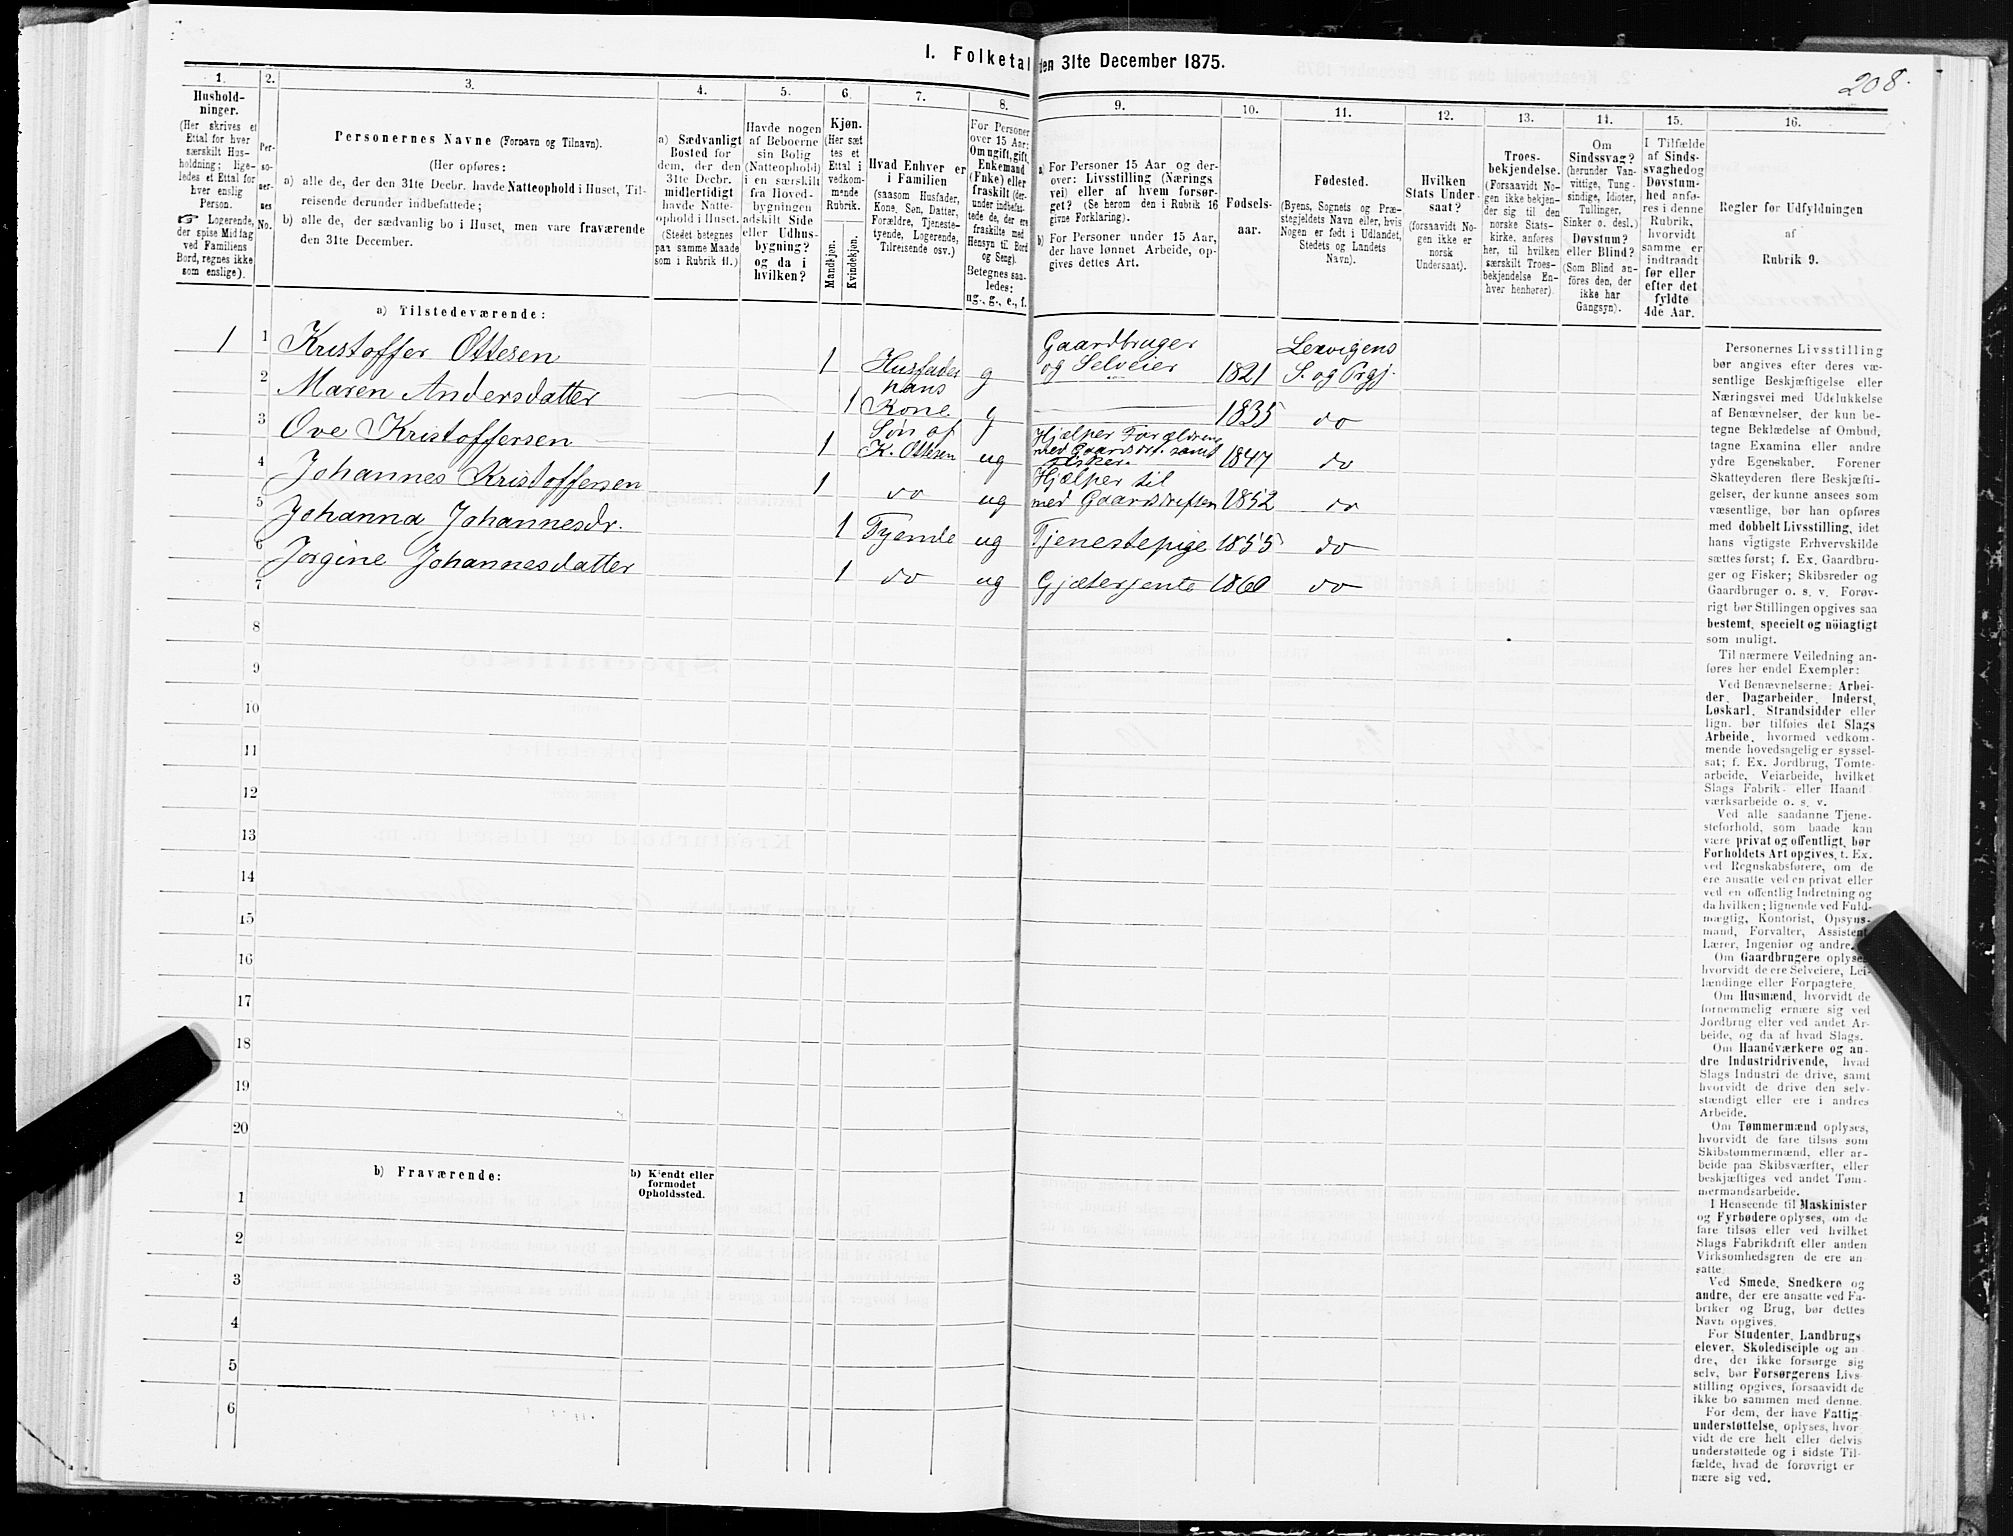 I. Folketal den 31te December 1875.
208.
1.
2.
3.
4.
5.
6.
7.
8.
9.
10.
11.
12.
13.
14.
15.
16.
Hushold-
ninger.
(Her skrives et
Ettal for hver
særskilt Hus-
holdning; lige-
ledes et Ettal for
hver enslig
Person.
☞ Logerende,
der spise Middag
ved Familiens
Bord, regnes ikke
som enslige).
Per-
so-
ner-
nes
No.
Personernes Navne (Fornavn og Tilnavn).
(Her opføres:
a) alle de, der den 31te Decbr. havde Natteophold i Huset, Til-
reisende derunder indbefattede;
b) alle de, der sædvanlig bo i Huset, men vare fraværende
den 31te December.
a) Sædvanligt
Bosted for
dem, der den
31te Decbr.
midlertidigt
havde Natte-
ophold i Huset.
(Stedet betegnes
paa samme Maade
som i Rubrik 11.)
Havde nogen
af Beboerne
sin Bolig
(Natteophold)
i en særskilt
fra Hoved-
bygningen
adskilt Side
eller Udhus-
bygning?
og da i
hvilken?
Kjøn.
(Her sæt-
tes et
Ettal i
vedkom-
mende
Rubrik.
Mandkjøn.
Kvindekjøn.
Hvad Enhver er
i Familien
(saasom Husfader,
Kone, Søn, Datter,
Forældre, Tjeneste-
tyende, Logerende,
Tilreisende osv.)
For Personer
over 15 Aar:
Om ugift, gift,
Enkemand
(Enke) eller
fraskilt (der-
under indbefat-
tede de, der ere
fraskilte med
Hensyn til Bord
og Seng).
Betegnes saa-
ledes:
ug., g., e., f.
a) For Personer 15 Aar og der-
over: Livsstilling (Nærings
vei) eller af hvem forsør-
get? (Se herom den i Rubrik 16
givne Forklaring).
b) For Personer under 15 Aar,
der have lønnet Arbeide, op-
gives dettes Art.
Fødsels-
aar.
Fødested.
(Byens, Sognets og Præ-
stegjeldets Navn eller, hvis
Nogen er født i Udlandet,
Stedets og Landets
Navn).
Hvilken
Stats Under-
saat?
(forsaavidt No-
gen ikke er
norsk
Undersaat).
Troes-
bekjendelse.
(Forsaavidt No-
gen ikke bekjen-
der sig til den
norske Stats-
kirke, anføres
her, til hvilken
særskilt Troes-
bekjendelse En-
hver henhører).
Om
Sindssvag?
(herunder Van-
vittige, Tung-
sindige, Idioter,
Tullinger,
Sinker o. desl.)
Døvstum?
eller Blind?
(Som Blind an-
føres den, der
ikke har
Gangsyn).
I Tilfælde
af Sinds-
svaghed og
Døvstum-
hed anfø-
res i denne
Rubrik,
hvorvidt
samme er
indtraadt
før eller
efter det
fyldte
4de Aar.
Regler for Udfyldningen
af
Rubrik 9.
a) Tilstedeværende:
1 1 Kristoffer Ottesen 1 Husfader g Gaardbruger og Selveier 1821 Lexvigens S. og Prgj.
2 Maren Andersdatter 1 hans Kone g 1835 do
3 Ove Kristoffersen 1 Søn af K. Ottesen ug Hjælper Forældrene med Gaardsdr. samt Fisker. 1847 do
4 Johannes Kristoffersen 1 do ug Hjælper til med Gaardsdriften 1852 do
5 Johanna Johannesdr. 1 Tyende ug Tjenestepige 1855 do
6 Jorgine Johannesdatter 1 do ug Gjæterjente 1860 do
7
8
9
10
11
12
13
14
15
16
17
18
19
20
b) Fraværende:
b) Kjendt eller
formodet
Opholdssted.
1
2
3
4
5
6
Personernes Livsstilling
bør angives efter deres væ-
sentlige Beskjæftigelse eller
Næringsvei med Udelukkelse
af Benævnelser, der kun be-
tegne Beklædelse af Ombud,
tagne Examina eller andre
ydre Egenskaber. Forener
Skatteyderen flere Beskjæfti-
gelser, der kunne ansees som
væsentlige, bør han opføres
med dobbelt Livsstilling, idet
hans vigtigste Erhvervskilde
sættes først; f. Ex. Gaardbru-
ger og Fisker; Skibsreder og
Gaardbruger o. s. v. Forøv-
rigt bør Stillingen opgives saa
bestemt, specielt og nöiagtigt
som muligt.
Til nærmere Veiledning an-
føres her endel Exempler:
Ved Benævnelserne: Arbei-
der, Dagarbeider, Inderst,
Løskarl, Strandsidder eller
lign. bør tilføies det Slags
Arbeide, hvormed vedkom-
mende hovedsagelig er syssel-
sat; f. Ex. Jordbrug, Tomte-
arbeide, Veiarbeide, hvilket
Slags Fabrik- eller Haand
værksarbeide o. s. v.
Ved alle saadanne Tjene-
steforhold, som baade kan
være privat og offentligt, bør
Forholdets Art opgives, t. Ex.
ved Regnskabsførere, om de
ere ansatte ved en privat eller
ved en offentlig Indretning og
da hvilken; lignende ved Fuld-
mægtig, Kontorist, Opsyns-
mand, Forvalter, Assistent,
Lærer, Ingeniør og andre.
Om Gaardbrugere oplyses,
hvorvidt de ere Selveiere, Lei-
lændinge eller Forpagtere.
Om Husmænd, hvorvidt de
fornemmelig ernære sig ved
Jordbrug eller ved andet Ar-
beide, og da af hvad Slags.
Om Haandværkere og an-
dre Industridrivende, hvad
Slags Industri de drive, samt
hvorvidt de drive den selv-
stændigt eller ere i andres
Arbeide.
Om Tømmermænd oplyses,
hvorvidt de fare tilsøs som
Skibstømmermænd, eller ar-
beide paa Skibsværfter, eller
beskjæftiges ved andet Tøm-
mermandsarbeide.
I Henseende til Maskinister
og Fyrbødere oplyses, om de
fare tilsøs eller ved hvilket
Slags Fabrikdrift eller anden
Virksomhedsgren de ere an-
satte.
Ved Smede, Snedkere og
andre, der ere ansatte ved Fa-
briker og Brug, bør dettes
Navn opgives.
For Studenter, Landbrugs
elever, Skoledisciple og an
dre, der ikke forsørge sig
selv, bør Forsørgerens Livs-
stilling opgives, forsaavidt de
ikke bo sammen med denne.
For dem, der have Fattig
understøttelse, oplyses, hvor
vidt de ere helt eller delvis
understøttede og i sidste Til-
fælde, hvad de forøvrigt er
nære sig ved.